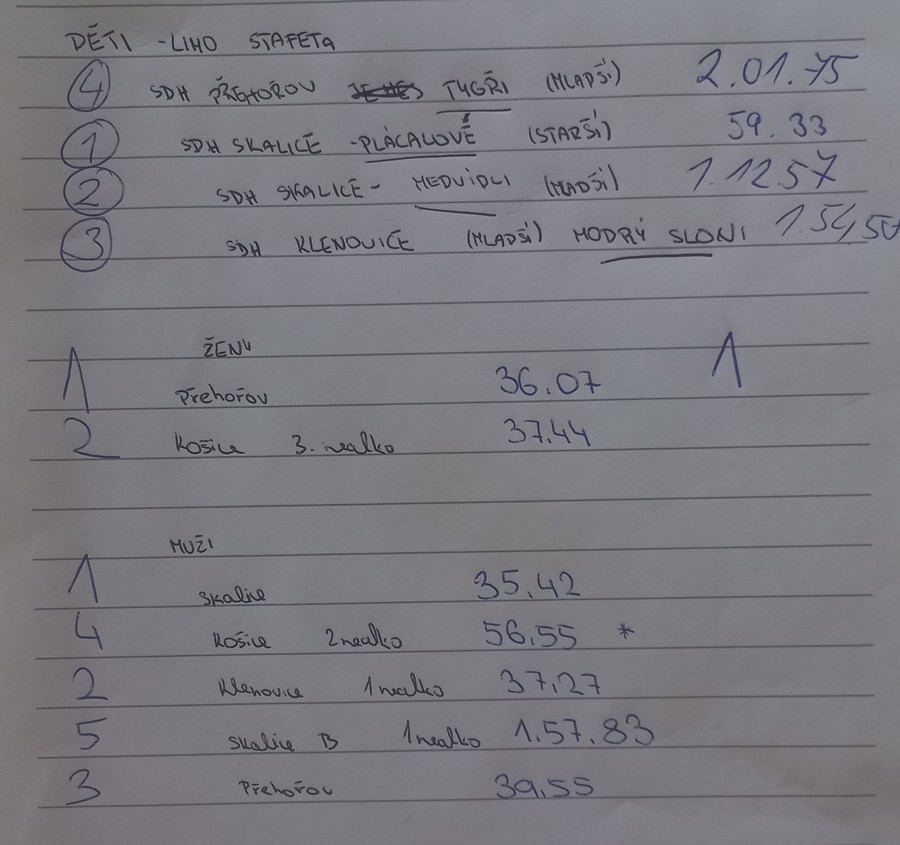 DĚTI - LIMO STAFETA
4 SDH PŘEHOŘOV TYGŘI (MLADŠÍ) 2.01.75
1 SDH SKALICE - PLÁCALOVÉ (STARŠÍ) 59.33
2 SDH SKALICE - MEDVÍDCI (MLADŠÍ) 1.12 57
3 SDH KLENOVICE (MLADŠÍ) MODRÝ SLONI 1.54,50
ŽENY
1 Přehořov 36.07 1
2 Košice 3. nealko 37.44
MUŽI
1 Skalice 35.42
4 Košice 2 nealko 56.55 *
2 Klenovice 1 nealko 37.27
5 Skalice B 1 nealko 1.57.83
3 Přehořov 39.55